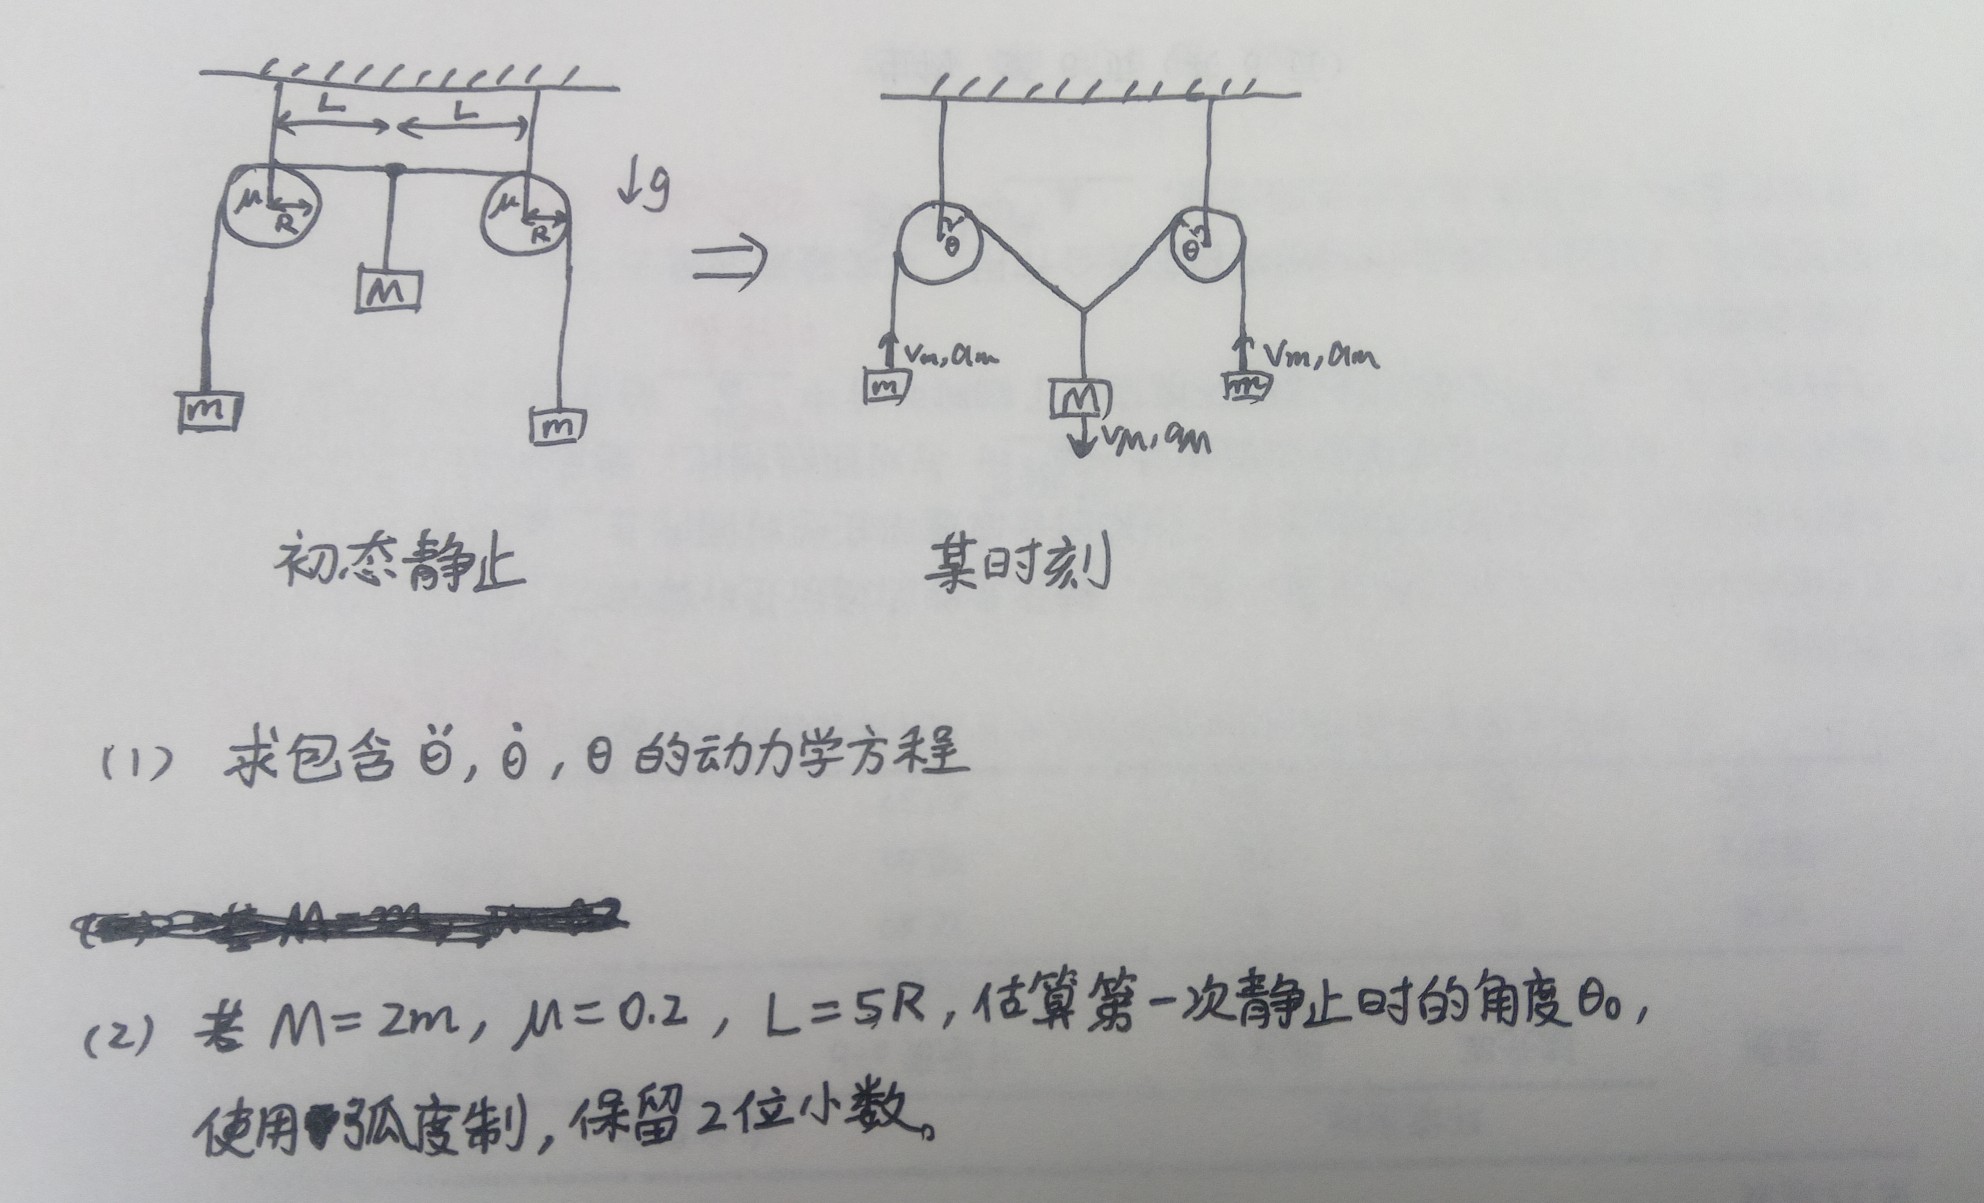 L L
μ R μ R ↓g
M
m m
θ θ
m Vm, am m Vm, am
M
VM, aM
初态静止 某时刻
(1) 求包含 θ̈, θ̇, θ 的动力学方程
(2) 若 M = 2m, μ = 0.2, L = 5R, 估算第一次静止时的角度θ₀,
使用弧度制, 保留2位小数。